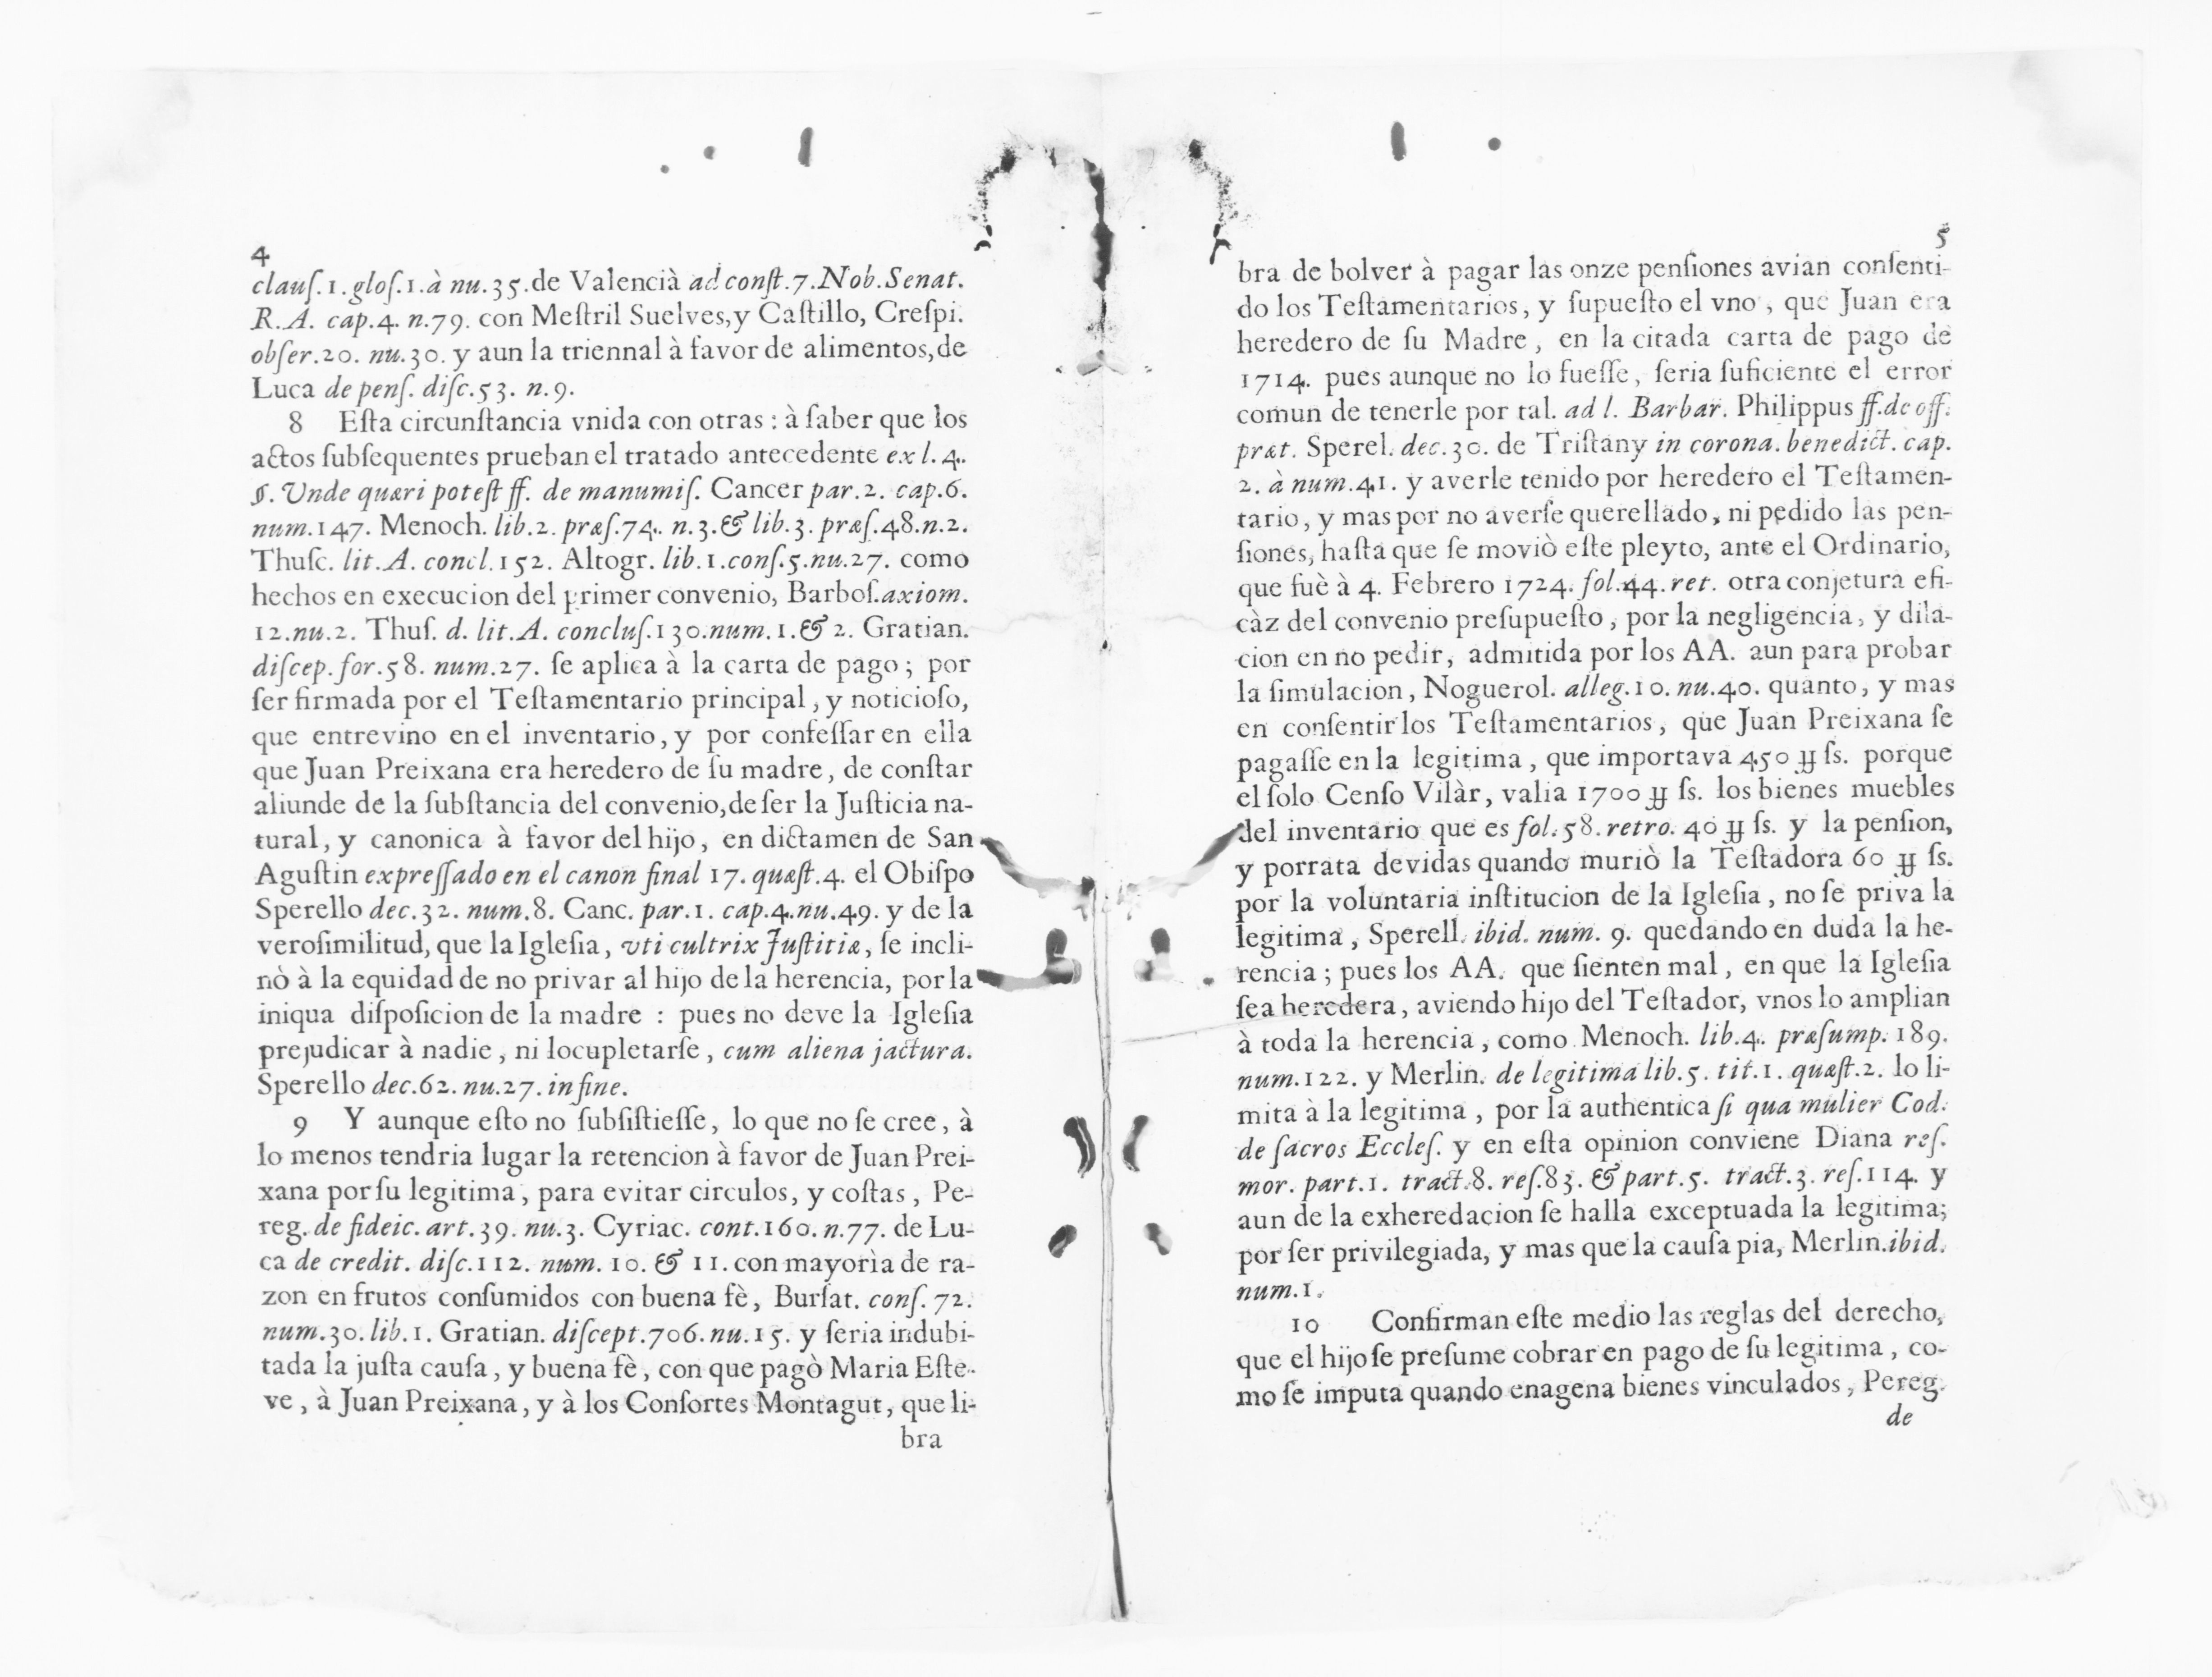 4
clauſ.1.gloſ.1.à nu.35.de Valencià ad conſt.7.Nob.Senat.
R.A. cap.4. n.79. con Meſtril Suelves,y Caſtillo, Creſpi.
obſer.20. nu.30. y aun la triennal à favor de alimentos,de
Luca de penſ. diſc.53. n.9.
8 Eſta circunſtancia vnida con otras : à ſaber que los
actos ſubſequentes prueban el tratado antecedente ex l.4.
§. Unde quæri poteſt ff. de manumiſ. Cancer par.2. cap.6.
num.147. Menoch. lib.2. præſ.74. n.3.& lib.3. præſ.48.n.2.
Thuſc. lit.A. concl.152. Altogr. lib.1.conſ.5.nu.27. como
hechos en execucion del primer convenio, Barboſ.axiom.
12.nu.2. Thuſ. d. lit.A. concluſ.130.num.1.& 2. Gratian.
diſcep.for.58. num.27. ſe aplica à la carta de pago; por
ſer firmada por el Teſtamentario principal, y noticioſo,
que entrevino en el inventario, y por confeſſar en ella
que Juan Preixana era heredero de ſu madre, de conſtar
aliunde de la ſubſtancia del convenio,de ſer la Juſticia na-
tural, y canonica à favor del hijo, en dictamen de San
Aguſtin expreſſado en el canon final 17. quæſt.4. el Obiſpo
Sperello dec.32. num.8. Canc. par.1. cap.4.nu.49. y de la
veroſimilitud, que la Igleſia, vti cultrix Juſtitiæ, ſe incli-
nò à la equidad de no privar al hijo de la herencia, por la
iniqua diſpoſicion de la madre : pues no deve la Igleſia
prejudicar à nadie, ni locupletarſe, cum aliena jactura.
Sperello dec.62. nu.27. in fine.
9 Y aunque eſto no ſubſiſtieſſe, lo que no ſe cree, à
lo menos tendria lugar la retencion à favor de Juan Prei-
xana por ſu legitima, para evitar circulos, y coſtas, Pe-
reg. de fideic. art.39. nu.3. Cyriac. cont.160. n.77. de Lu-
ca de credit. diſc.112. num. 10. & 11. con mayorìa de ra-
zon en frutos conſumidos con buena fè, Burſat. conſ. 72.
num.30. lib.1. Gratian. diſcept.706. nu.15. y ſeria indubi-
tada la juſta cauſa, y buena fè, con que pagò Maria Eſte-
ve, à Juan Preixana, y à los Conſortes Montagut, que li-
bra
5
bra de bolver à pagar las onze penſiones avian conſenti-
do los Teſtamentarios, y ſupueſto el vno, que Juan era
heredero de ſu Madre, en la citada carta de pago de
1714. pues aunque no lo fueſſe, ſeria ſuficiente el error
comun de tenerle por tal. ad l. Barbar. Philippus ff.de off.
præt. Sperel. dec.30. de Triſtany in corona. benedict. cap.
2. à num.41. y averle tenido por heredero el Teſtamen-
tario, y mas por no averſe querellado, ni pedido las pen-
ſiones, haſta que ſe moviò eſte pleyto, ante el Ordinario,
que fuè à 4. Febrero 1724. fol.44. ret. otra conjetura efi-
càz del convenio preſupueſto, por la negligencia, y dila-
cion en no pedir, admitida por los AA. aun para probar
la ſimulacion, Noguerol. alleg.10. nu.40. quanto, y mas
en conſentir los Teſtamentarios, que Juan Preixana ſe
pagaſſe en la legitima, que importava 450 ʮ ſs. porque
el ſolo Cenſo Vilàr, valia 1700 ʮ ſs. los bienes muebles
del inventario que es fol.58. retro. 40 ʮ ſs. y la penſion,
y porrata devidas quando muriò la Teſtadora 60 ʮ ſs.
por la voluntaria inſtitucion de la Igleſia, no ſe priva la
legitima, Sperell. ibid. num. 9. quedando en duda la he-
rencia; pues los AA. que ſienten mal, en que la Igleſia
ſea heredera, aviendo hijo del Teſtador, vnos lo amplian
à toda la herencia, como Menoch. lib.4. præſump. 189.
num.122. y Merlin. de legitima lib.5. tit.1. quæſt.2. lo li-
mita à la legitima, por la authentica ſi qua mulier Cod.
de ſacros Eccleſ. y en eſta opinion conviene Diana reſ.
mor. part.1. tract.8. reſ.83. & part.5. tract.3. reſ.114. y
aun de la exheredacion ſe halla exceptuada la legitima;
por ſer privilegiada, y mas que la cauſa pia, Merlin.ibid.
num.1.
10 Confirman eſte medio las reglas del derecho,
que el hijo ſe preſume cobrar en pago de ſu legitima, co-
mo ſe imputa quando enagena bienes vinculados, Pereg.
de